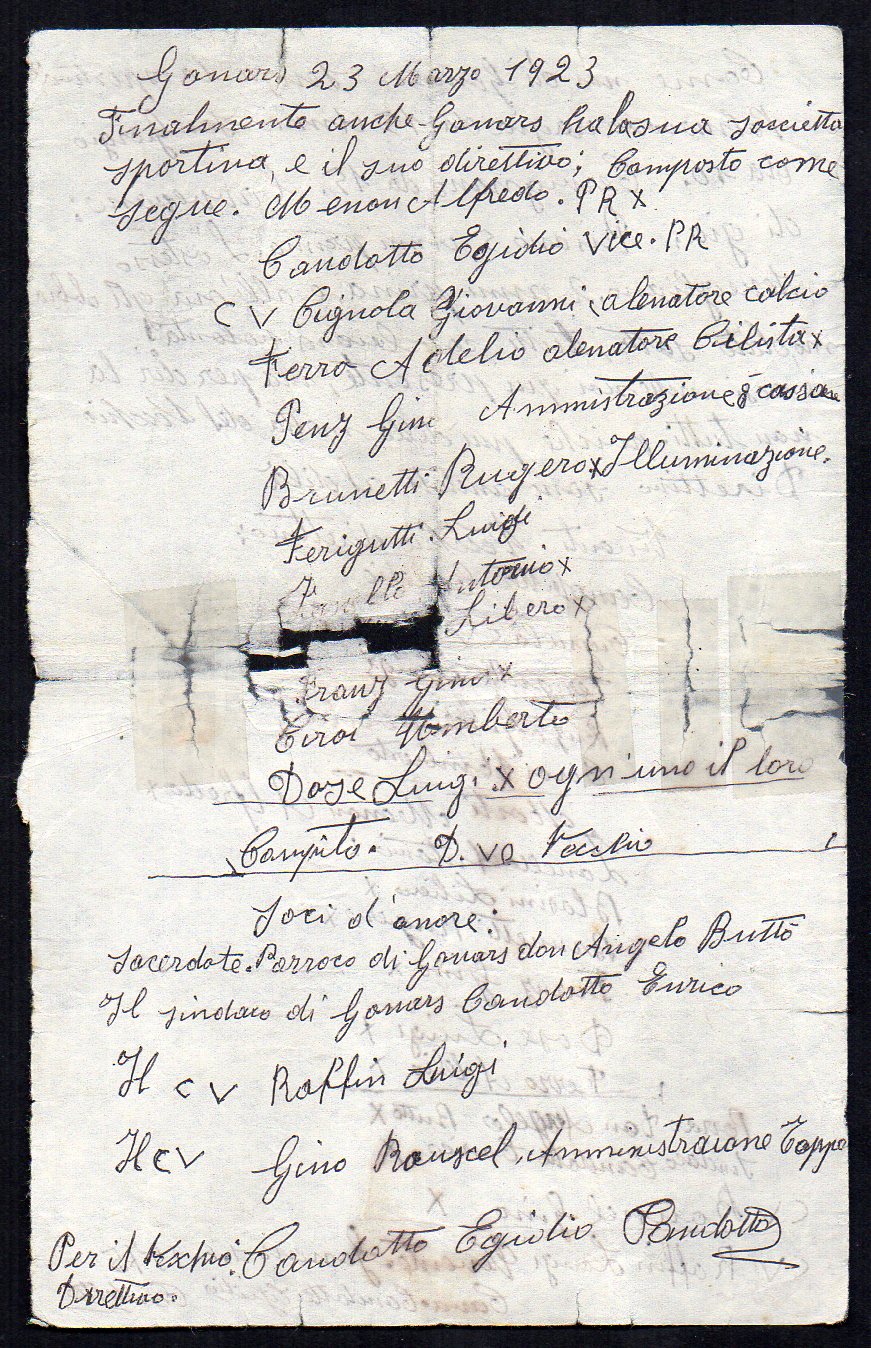 Gonars 23 Marzo 1923
Finalmente anche Gonars ha la sua socciettà
sportiva, e il suo direttivo; Composto come
segue. Menon Alfredo. PR x
Candotto Egidio Vice. PR
C V Cignola Giovanni, alenatore calcio
Ferro Adelio alenatore Cilista x
Penz Gino Amministrazione e cassiere
Brunetti Rugero x Illuminazione.
Ferigutti. Luigi
Antonio x
Libero x
Franz Gino x
Ciroi Umberto
Dose Luigi. x ogni uno il loro
Compito. D. vo Veschio
Soci d'onore:
Sacerdote. Parroco di Gonars don Angelo Buttò
Il sindaco di Gonars Candotto Enrico
Il C V Raffin Luigi
Il C V Gino Amministraione Toppo
Per il Veschio. Candotto Egidio Candotto
Direttivo.